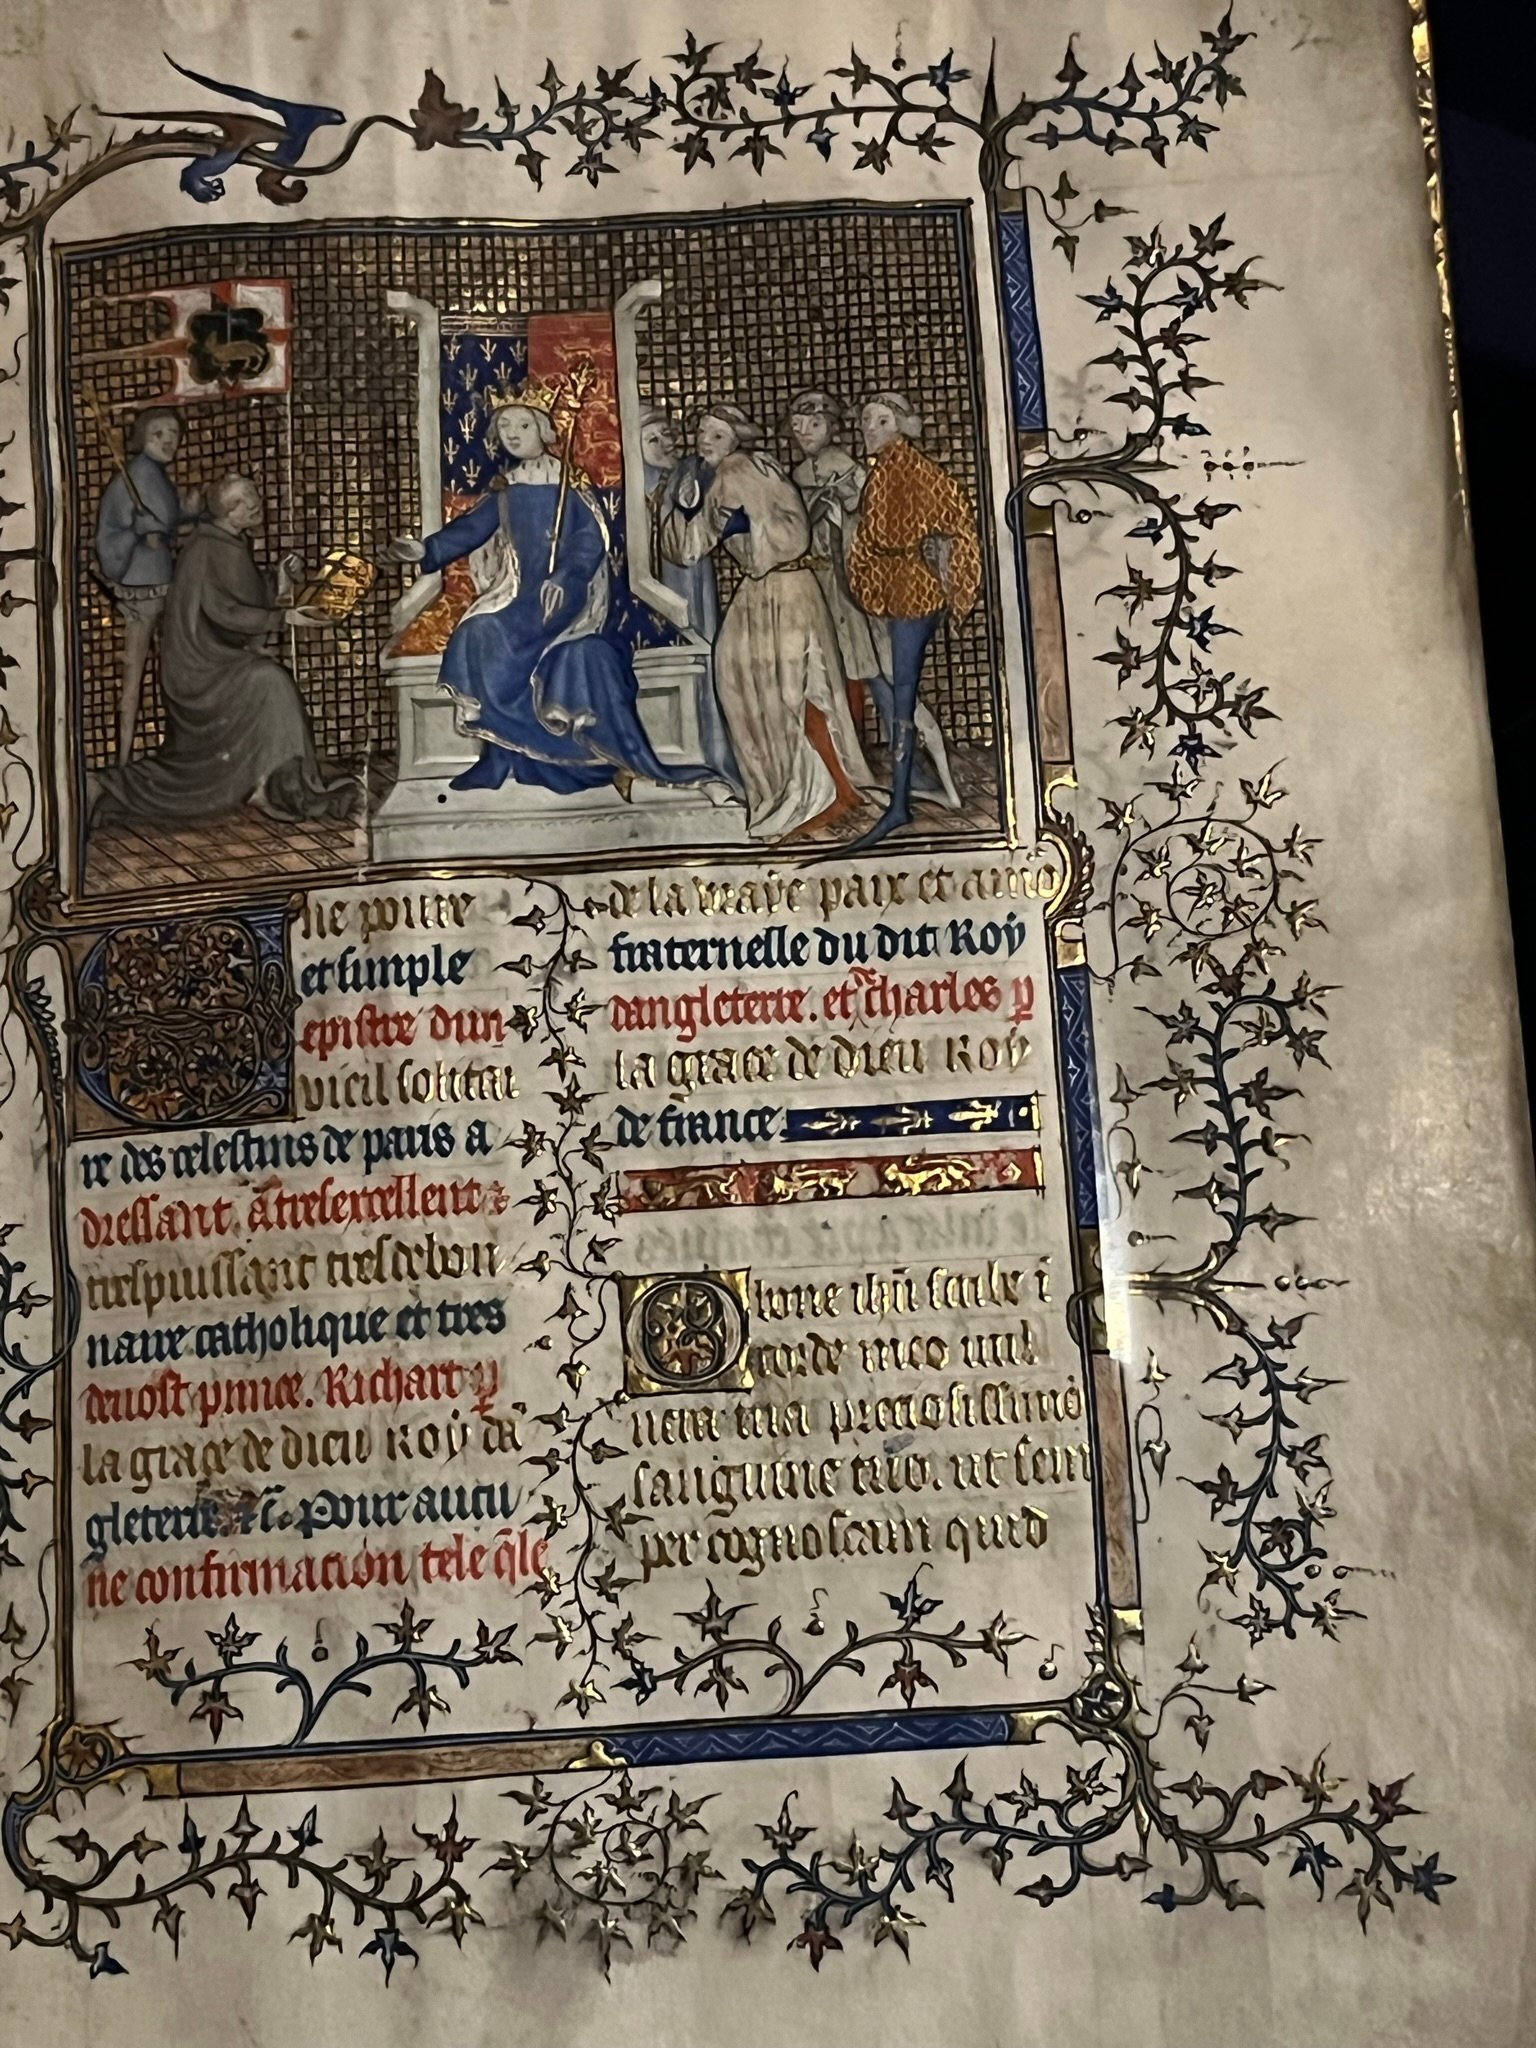 Une poure
et simple
epistre dun
vieil solitai
re des celestins de paris a
dressant. a tresexcellent
trespuissant tresdebon
naire catholique et tres
deuost prince. Richart p
la grace de dieu Roy dā
gleterre. ⁊c̄. Pour aucu
ne confirmacion tele q̄le
de la vraye paix et amo
fraternelle du dit Roy
dangleterre. et Charles p
la grace de dieu Roy
de france.
O bone ihū scribe ī
corde meo uul
nera tua preciosissimo
sanguine tuo. ut sem
per cognoscam quid